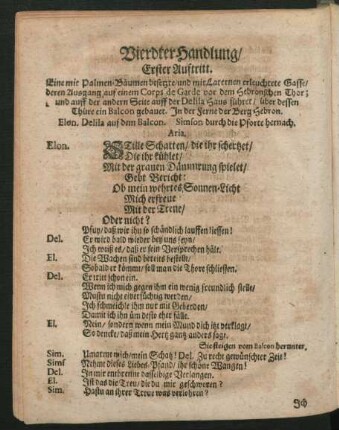 Vierdter Handlung/
Erster Auftritt.
Eine mit Palmen-Bäumen besetzte/und mit Laternen erleuchtete Gasse/
deren Ausgang auf einem Corps de Garde vor dem Hebronschen Thor;
und auff der andern Seite auff der Delila Haus führet/ über dessen
Thüre ein Balcon gebauet. In der Ferne der Berg Hebron.
Elon. Delila auf dem Balcon. Simson durch die Pforte hernach.
Aria.
Elon. STille Schatten/ die ihr scherhet/
Die ihr kühlet/
Mit der grauen Dämmrung spielet/
Gebt Bericht:
Ob mein wehrtes Sonnen-Licht
Mich erfreue
Mit der Treue/
Oder nicht?
Pfuy/daß wir ihn so schändlich lauffen liessen!
Del. Er wird bald wieder bey uns seyn/
Ich weiß es/ daß er sein Versprechen hält.
El. Die Wachen sind bereits bestellt/
Sobald er kömmt/ soll man die Thore schliessen.
Del. Er tritt schon ein.
Wenn ich mich gegen ihm ein wenig freundlich stelle/
Mustu nicht eifersüchtig werden/
Ich schmeichle ihm nur mit Geberden/
Damit ich ihn um desto eher fälle.
El. Nein/ sondern wenn mein Mund dich ihr verklagt/
So dencke/ daß mein Hertz gantz anders sagt.
Sie steigen vom Balcon herunter.
Sim. Umarme mich/mein Schatz! Del. Zu recht gewünschter Zeit!
Sims Nehmt dieses Liebes-Pfand/ ihr schöne Wangen!
Del. In mir entbrennt dasselbige Verlangen.
El. Ist das die Treu/ die du mir geschworen?
Sim. Hastu an ihrer Treue was verlohren?
Ich